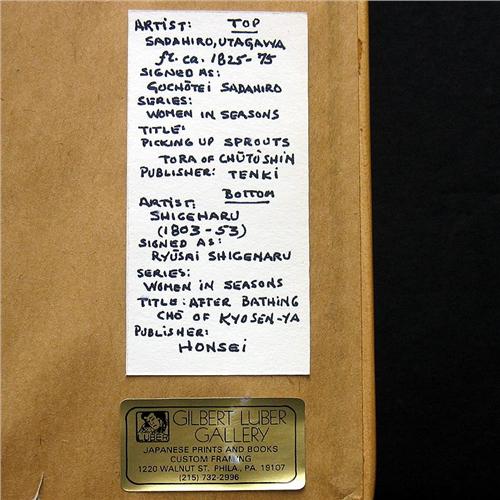 ARTIST: TOP
SADAHIRO, UTAGAWA
fl. ca. 1825-75
SIGNED AS:
GOCHŌTEI SADAHIRO
SERIES:
WOMEN IN SEASONS
TITLE:
PICKING UP SPROUTS
TORA OF CHŪTŌSHIN
PUBLISHER: TENKI
BOTTOM
ARTIST:
SHIGEHARU
(1803-53)
SIGNED AS:
RYŪSAI SHIGEHARU
SERIES:
WOMEN IN SEASONS
TITLE: AFTER BATHING
CHŌ OF KYOSEN-YA
PUBLISHER:
HONSEI
LUBER
GILBERT LUBER
GALLERY
JAPANESE PRINTS AND BOOKS
CUSTOM FRAMING
1220 WALNUT ST. PHILA., PA. 19107
(215) 732-2996